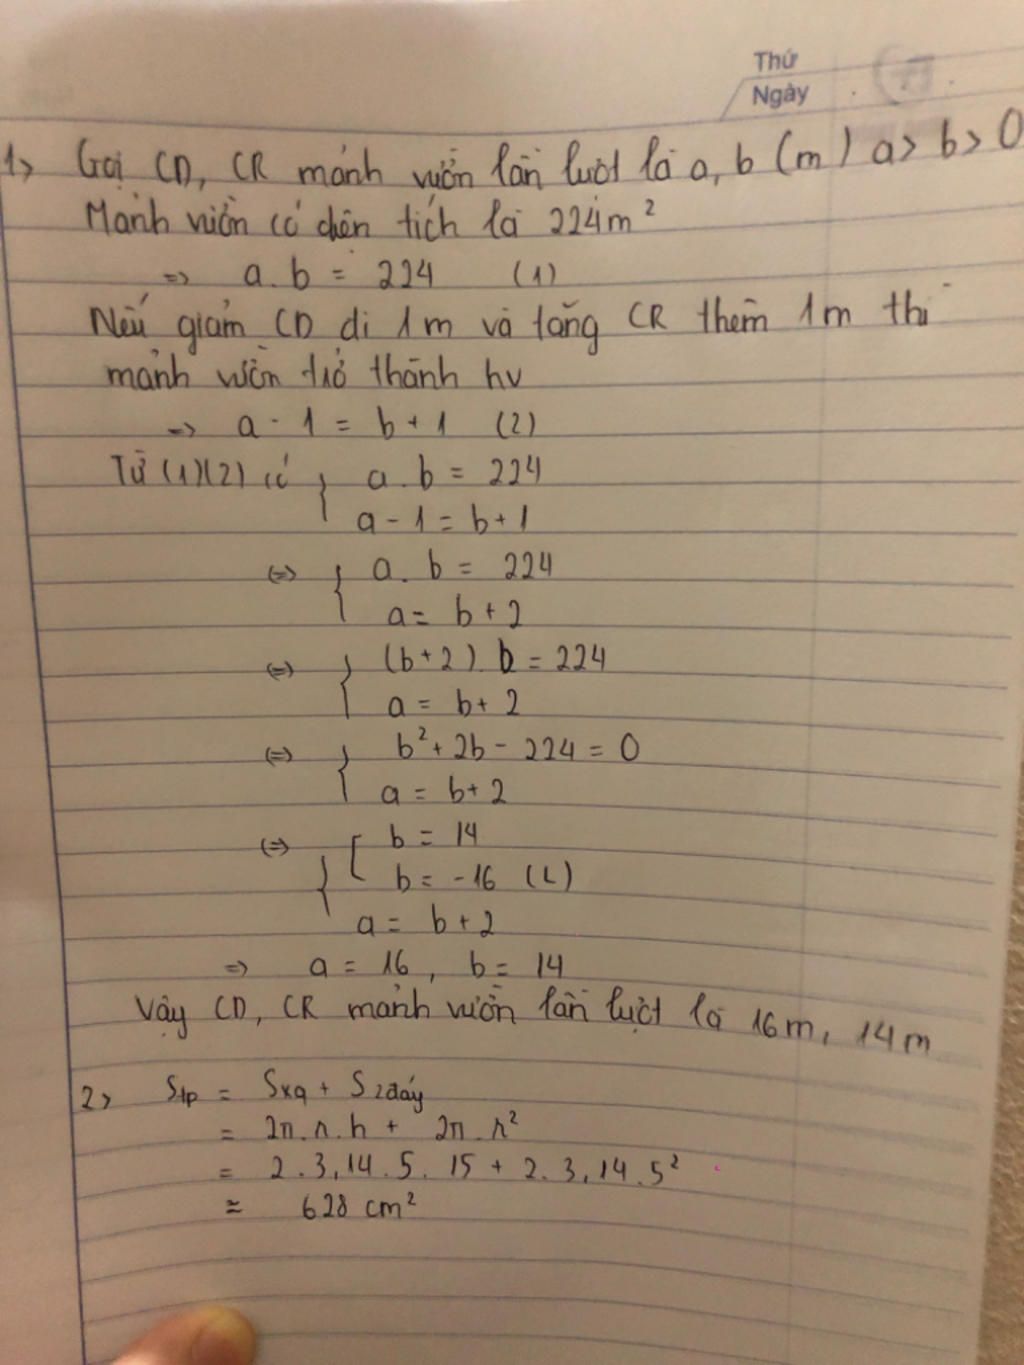 Thứ
Ngày
1> Gọi CD, CR mảnh vườn lần lượt là a, b (m) a > b > 0
Mảnh vườn có diện tích là 224m²
=> a.b = 224 (1)
Nếu giảm CD đi 1m và tăng CR thêm 1m thì
mảnh vườn trở thành hv
=> a - 1 = b + 1 (2)
Từ (1)(2) có { a.b = 224
a - 1 = b + 1
(=) { a.b = 224
a = b + 2
(=) { (b+2).b = 224
a = b + 2
(=) { b² + 2b - 224 = 0
a = b + 2
(=) { [ b = 14
b = -16 (L)
a = b + 2
=> a = 16, b = 14
Vậy CD, CR mảnh vườn lần lượt là 16m, 14m
2> Stp = Sxq + S2đáy
= 2π.r.h + 2π.r²
= 2.3,14.5.15 + 2.3,14.5²
≈ 628 cm²